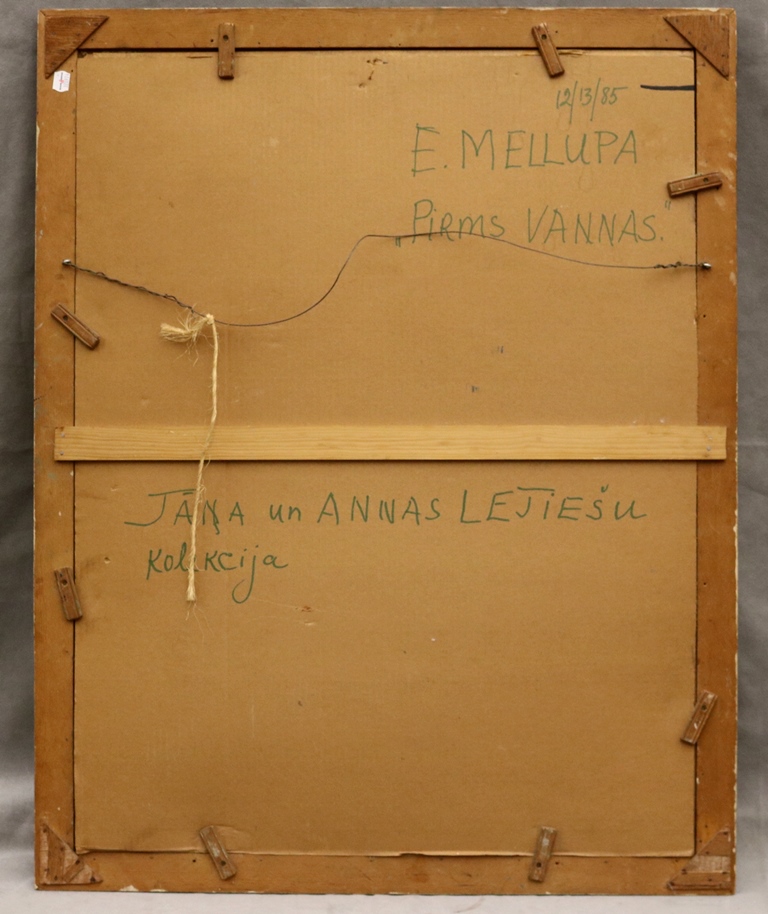 12/13/85
E. MELLUPA
„PiRMS VANNAS."
JĀŅA un ANNAS LEJiEŠU
Kolekcija